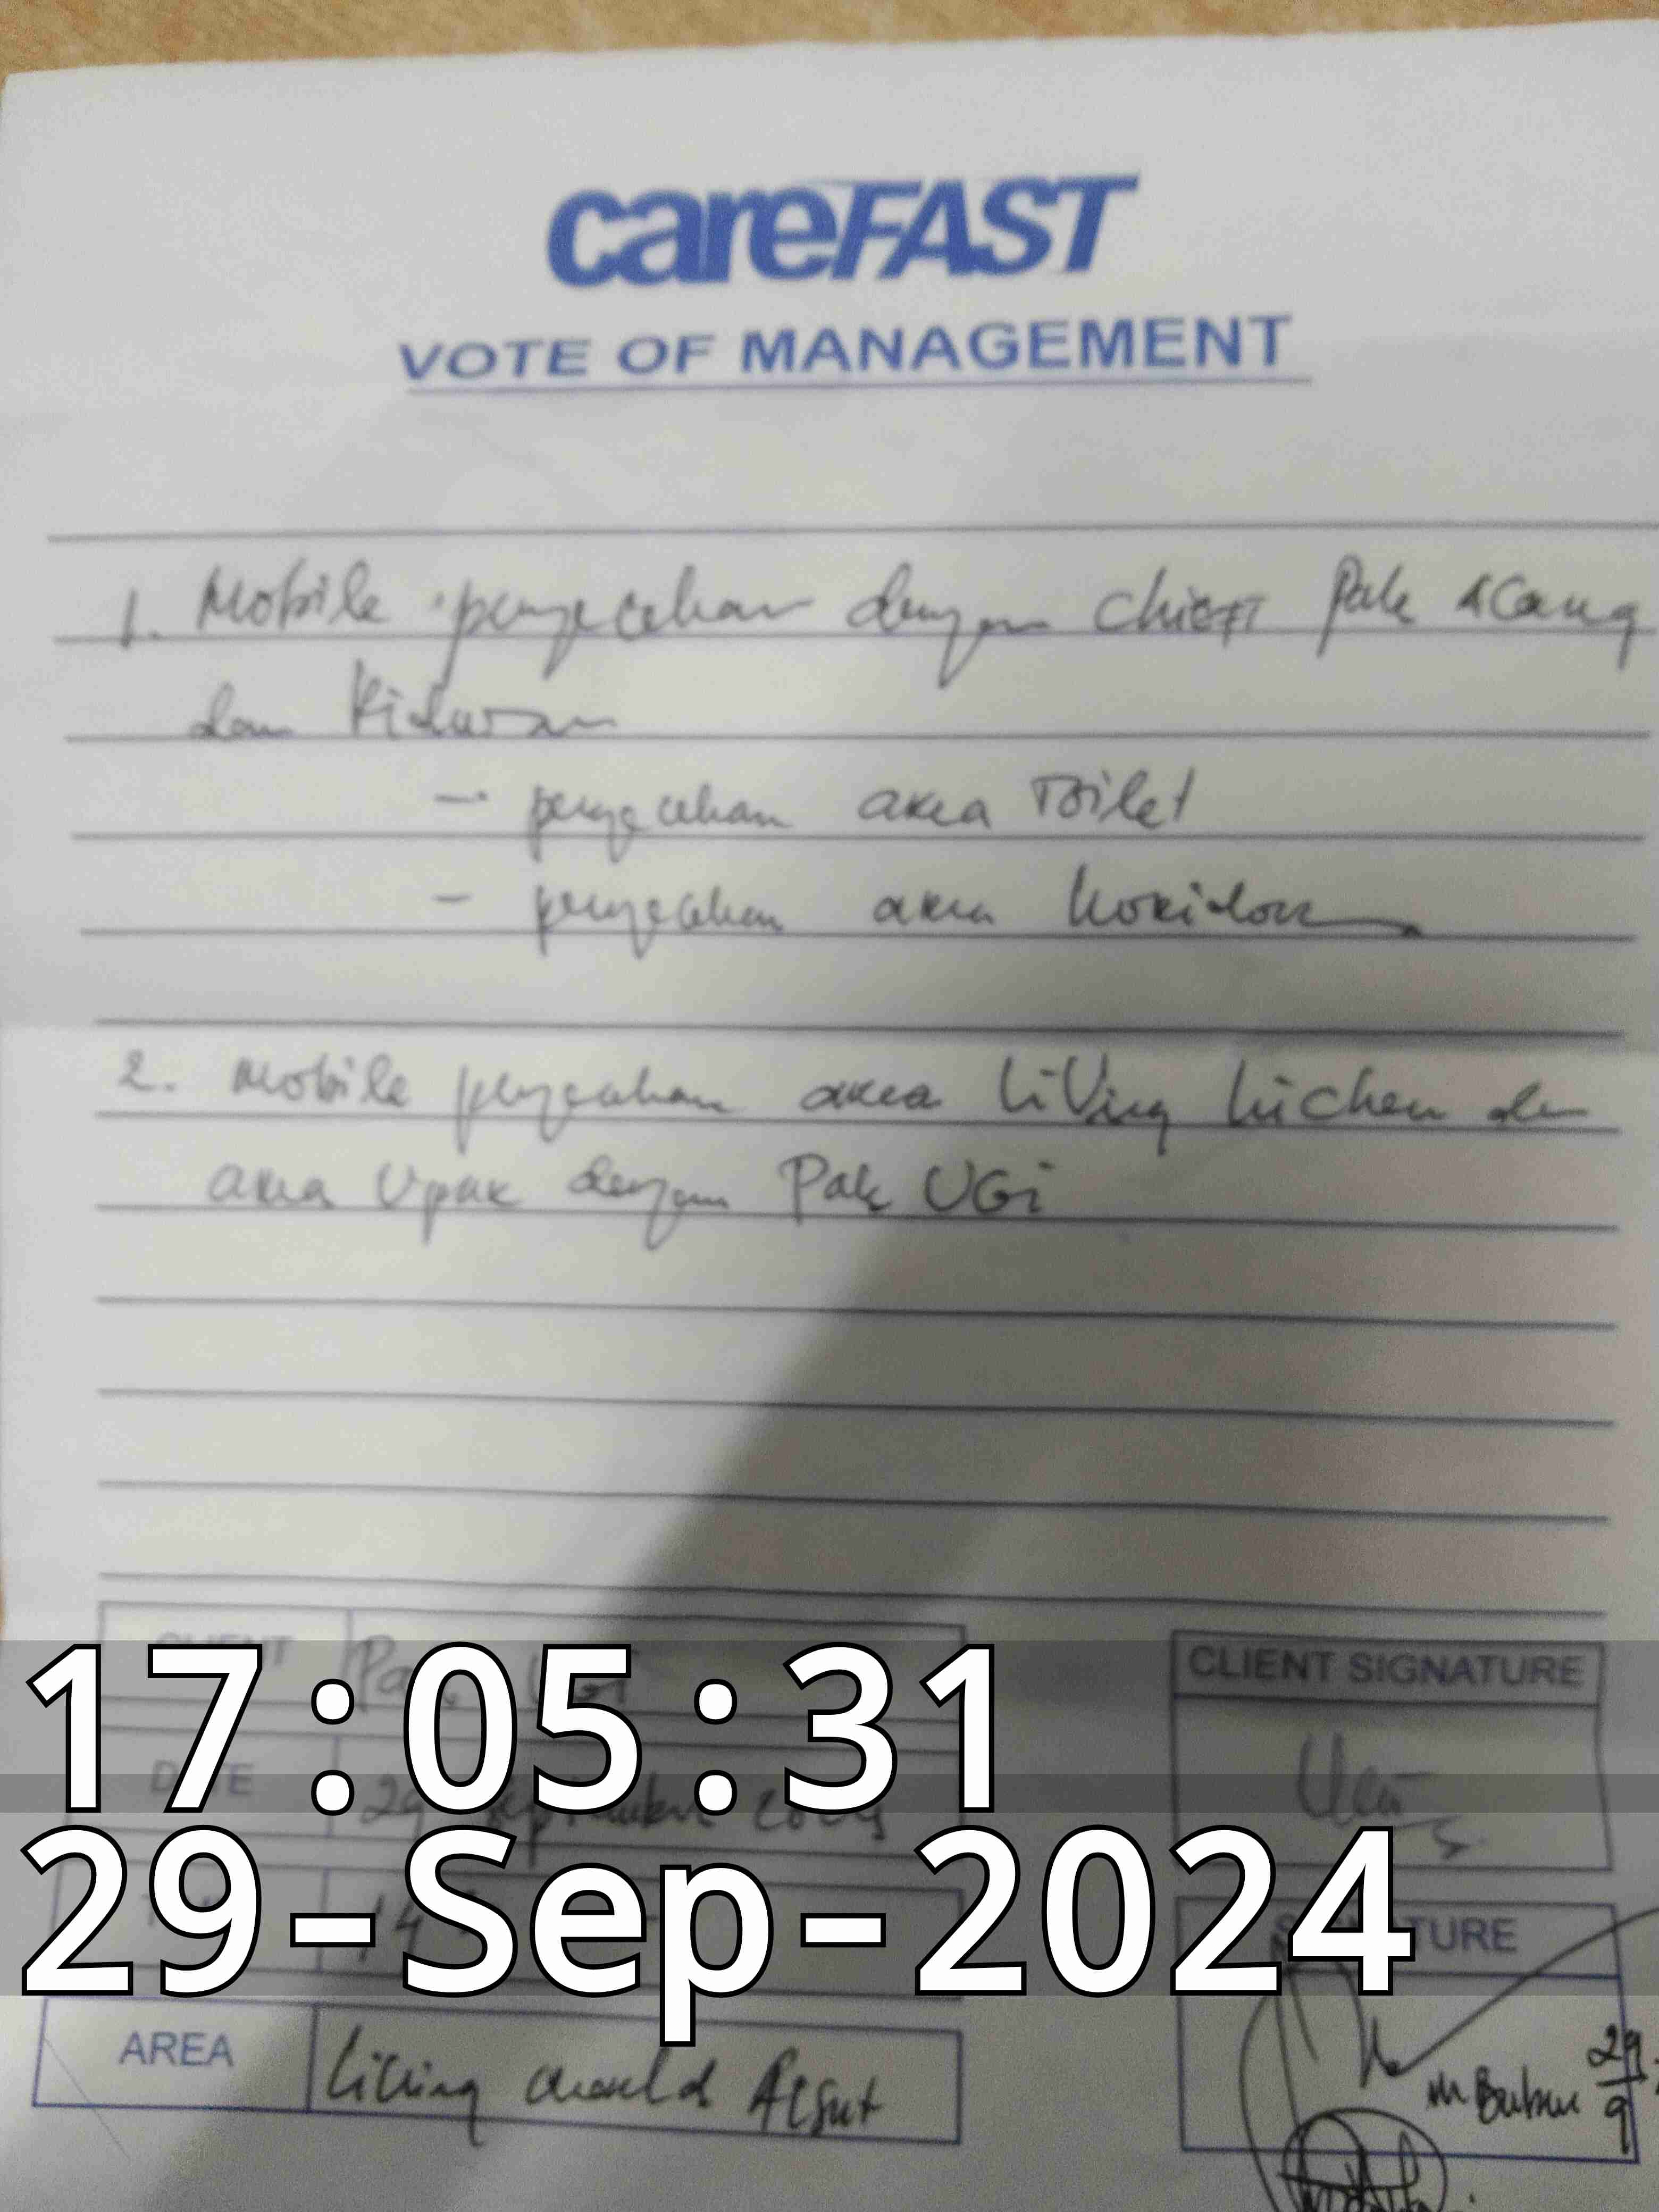 careFAST
VOTE OF MANAGEMENT
1. Mobile pengecekan dengan chief Pak
dan Ridwan
- pengecekan area Toilet
- pengecekan area koridor
2. Mobile pengecekan area living kichen dan
area Upak dengan Pak UGi
CLIENT Pak UGi
CLIENT SIGNATURE
17:05:31
DATE 29 September 2024
29-Sep-2024
14
SIGNATURE
AREA living world Alsut
29
9